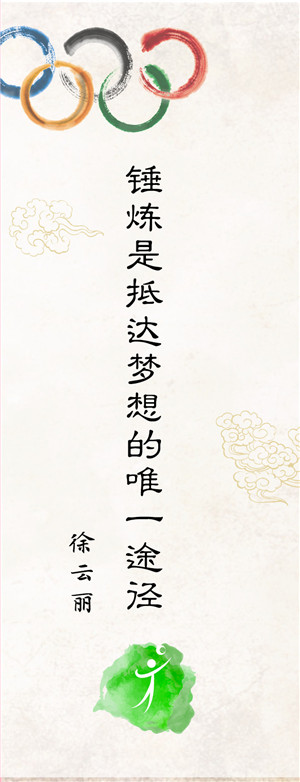 锤炼是抵达梦想的唯一途径
徐云丽